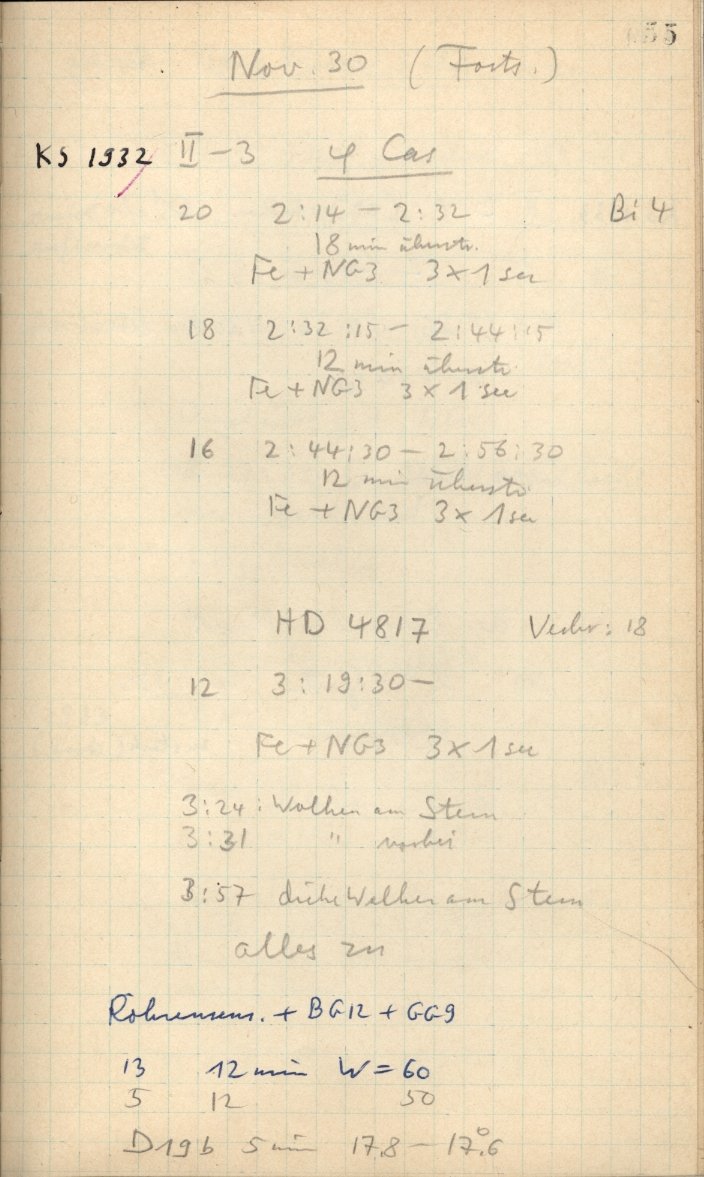 55
Nov. 30 (Forts.)
KS 1932 II-3 φ Cas
20 2:14 - 2:32 Bi 4
18 min überstr.
Fe + NG3 3 x 1 sec
18 2:32:15 - 2:44:15
12 min überstr.
Fe + NG3 3 x 1 sec
16 2:44:30 - 2:56:30
12 min überstr.
Fe + NG3 3 x 1 sec
HD 4817 18
12 3:19:30 -
Fe + NG3 3 x 1 sec
3:24: Wolken am Stern
3:31 " vorbei
3:57 dicke Wolken am Stern
alles zu
Röhrensens. + BG12 + GG9
13 12 min W = 60
5 12 50
D19b 5 min 17,8 - 17,°6